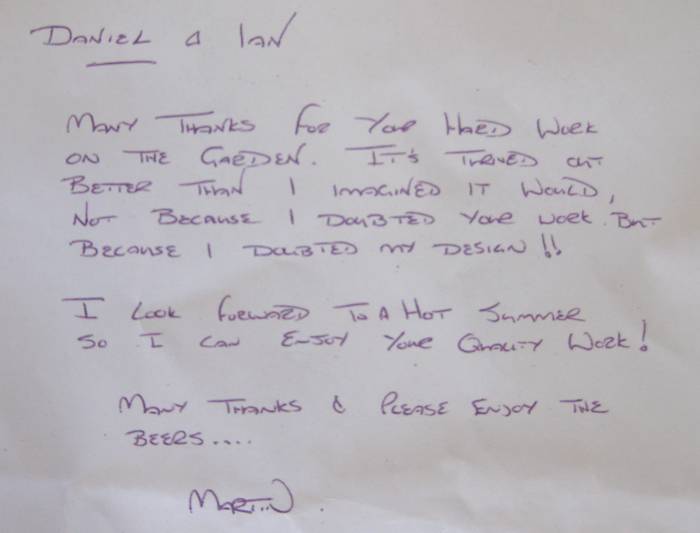 DANIEL & IAN
MANY THANKS FOR YOUR HARD WORK
ON THE GARDEN. IT'S TURNED OUT
BETTER THAN I IMAGINED IT WOULD,
NOT BECAUSE I DOUBTED YOUR WORK. BUT
BECAUSE I DOUBTED MY DESIGN!!
I LOOK FORWARD TO A HOT SUMMER
SO I CAN ENJOY YOUR QUALITY WORK!
MANY THANKS & PLEASE ENJOY THE
BEERS....
MARTIN.